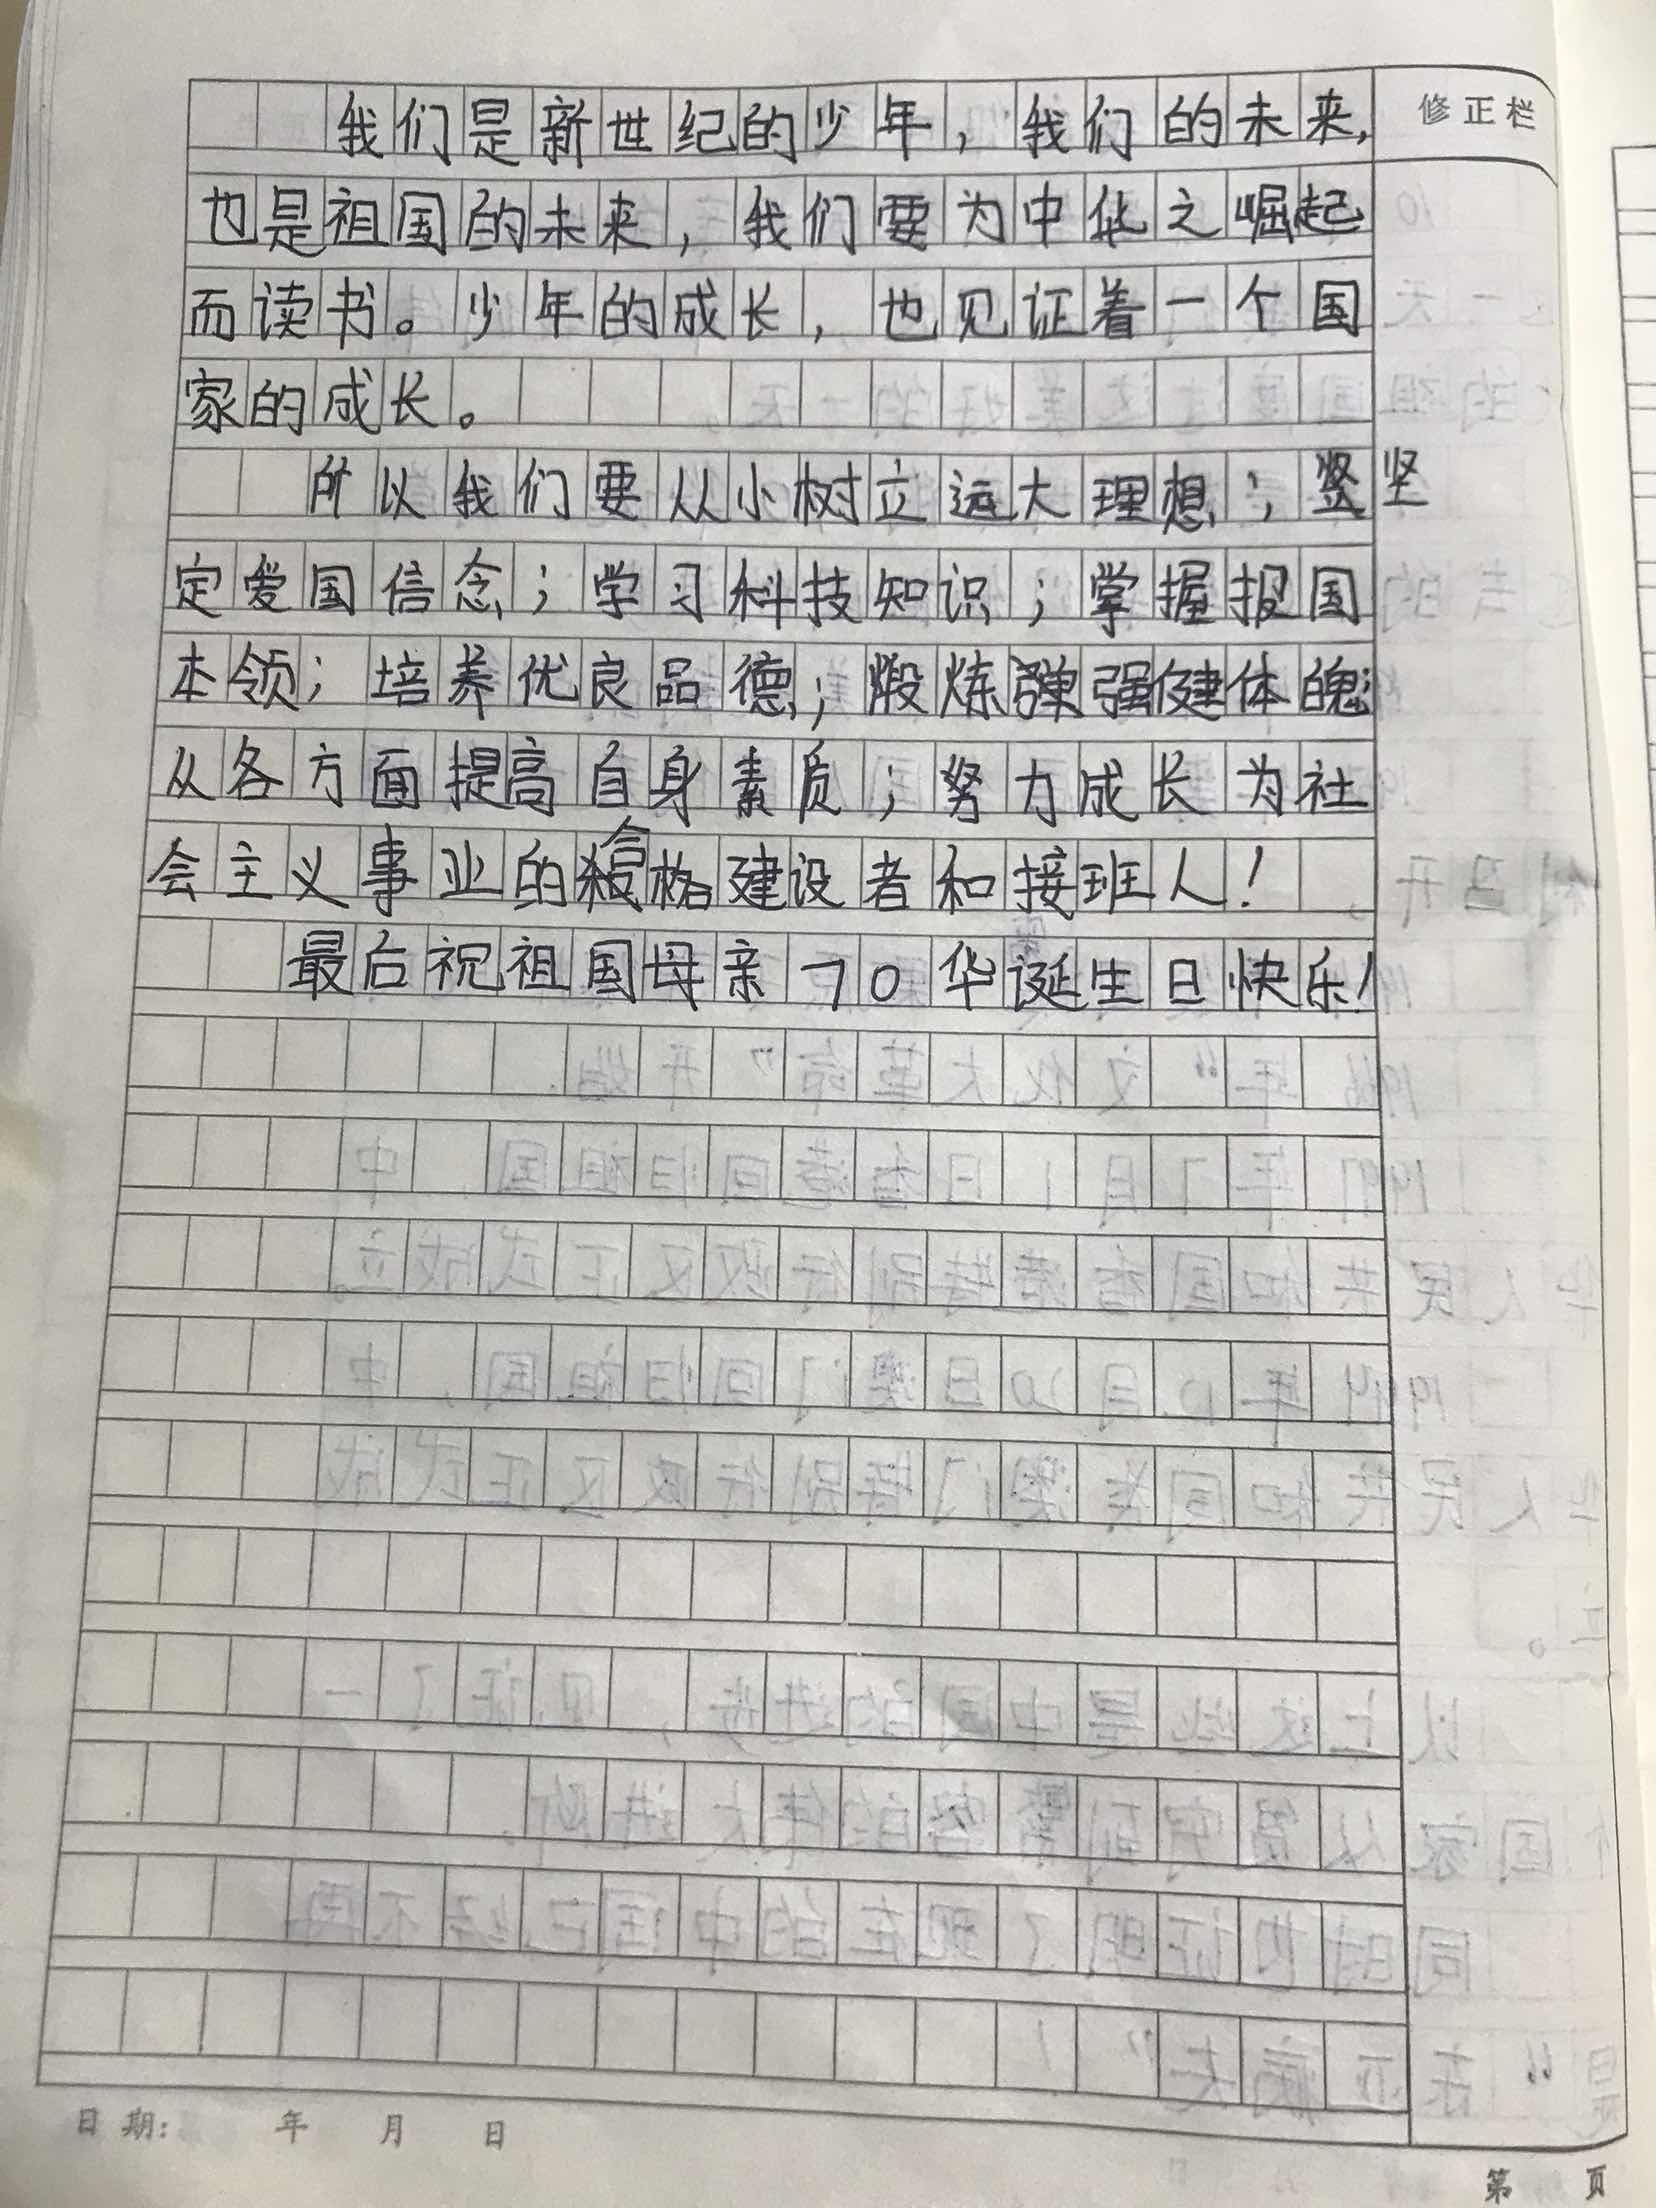 修正栏
我们是新世纪的少年，我们的未来，
也是祖国的未来，我们要为中华之崛起
而读书。少年的成长，也见证着一个国
家的成长。
所以我们要从小树立远大理想；坚
定爱国信念；学习科技知识；掌握报国
本领；培养优良品德；煅炼强健体魄；
从各方面提高自身素质；努力成长为社
会主义事业的合格建设者和接班人！
最后祝祖国母亲70华诞生日快乐！
日期： 年 月 日
第 页